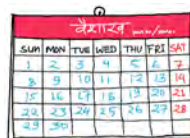 वैशाख
SUN MON TUE WED THU FRI SAT
1 2 3 4 5 6 7
8 9 10 11 12 13 14
15 16 17 18 19 20 21
22 23 24 25 26 27 28
29 30